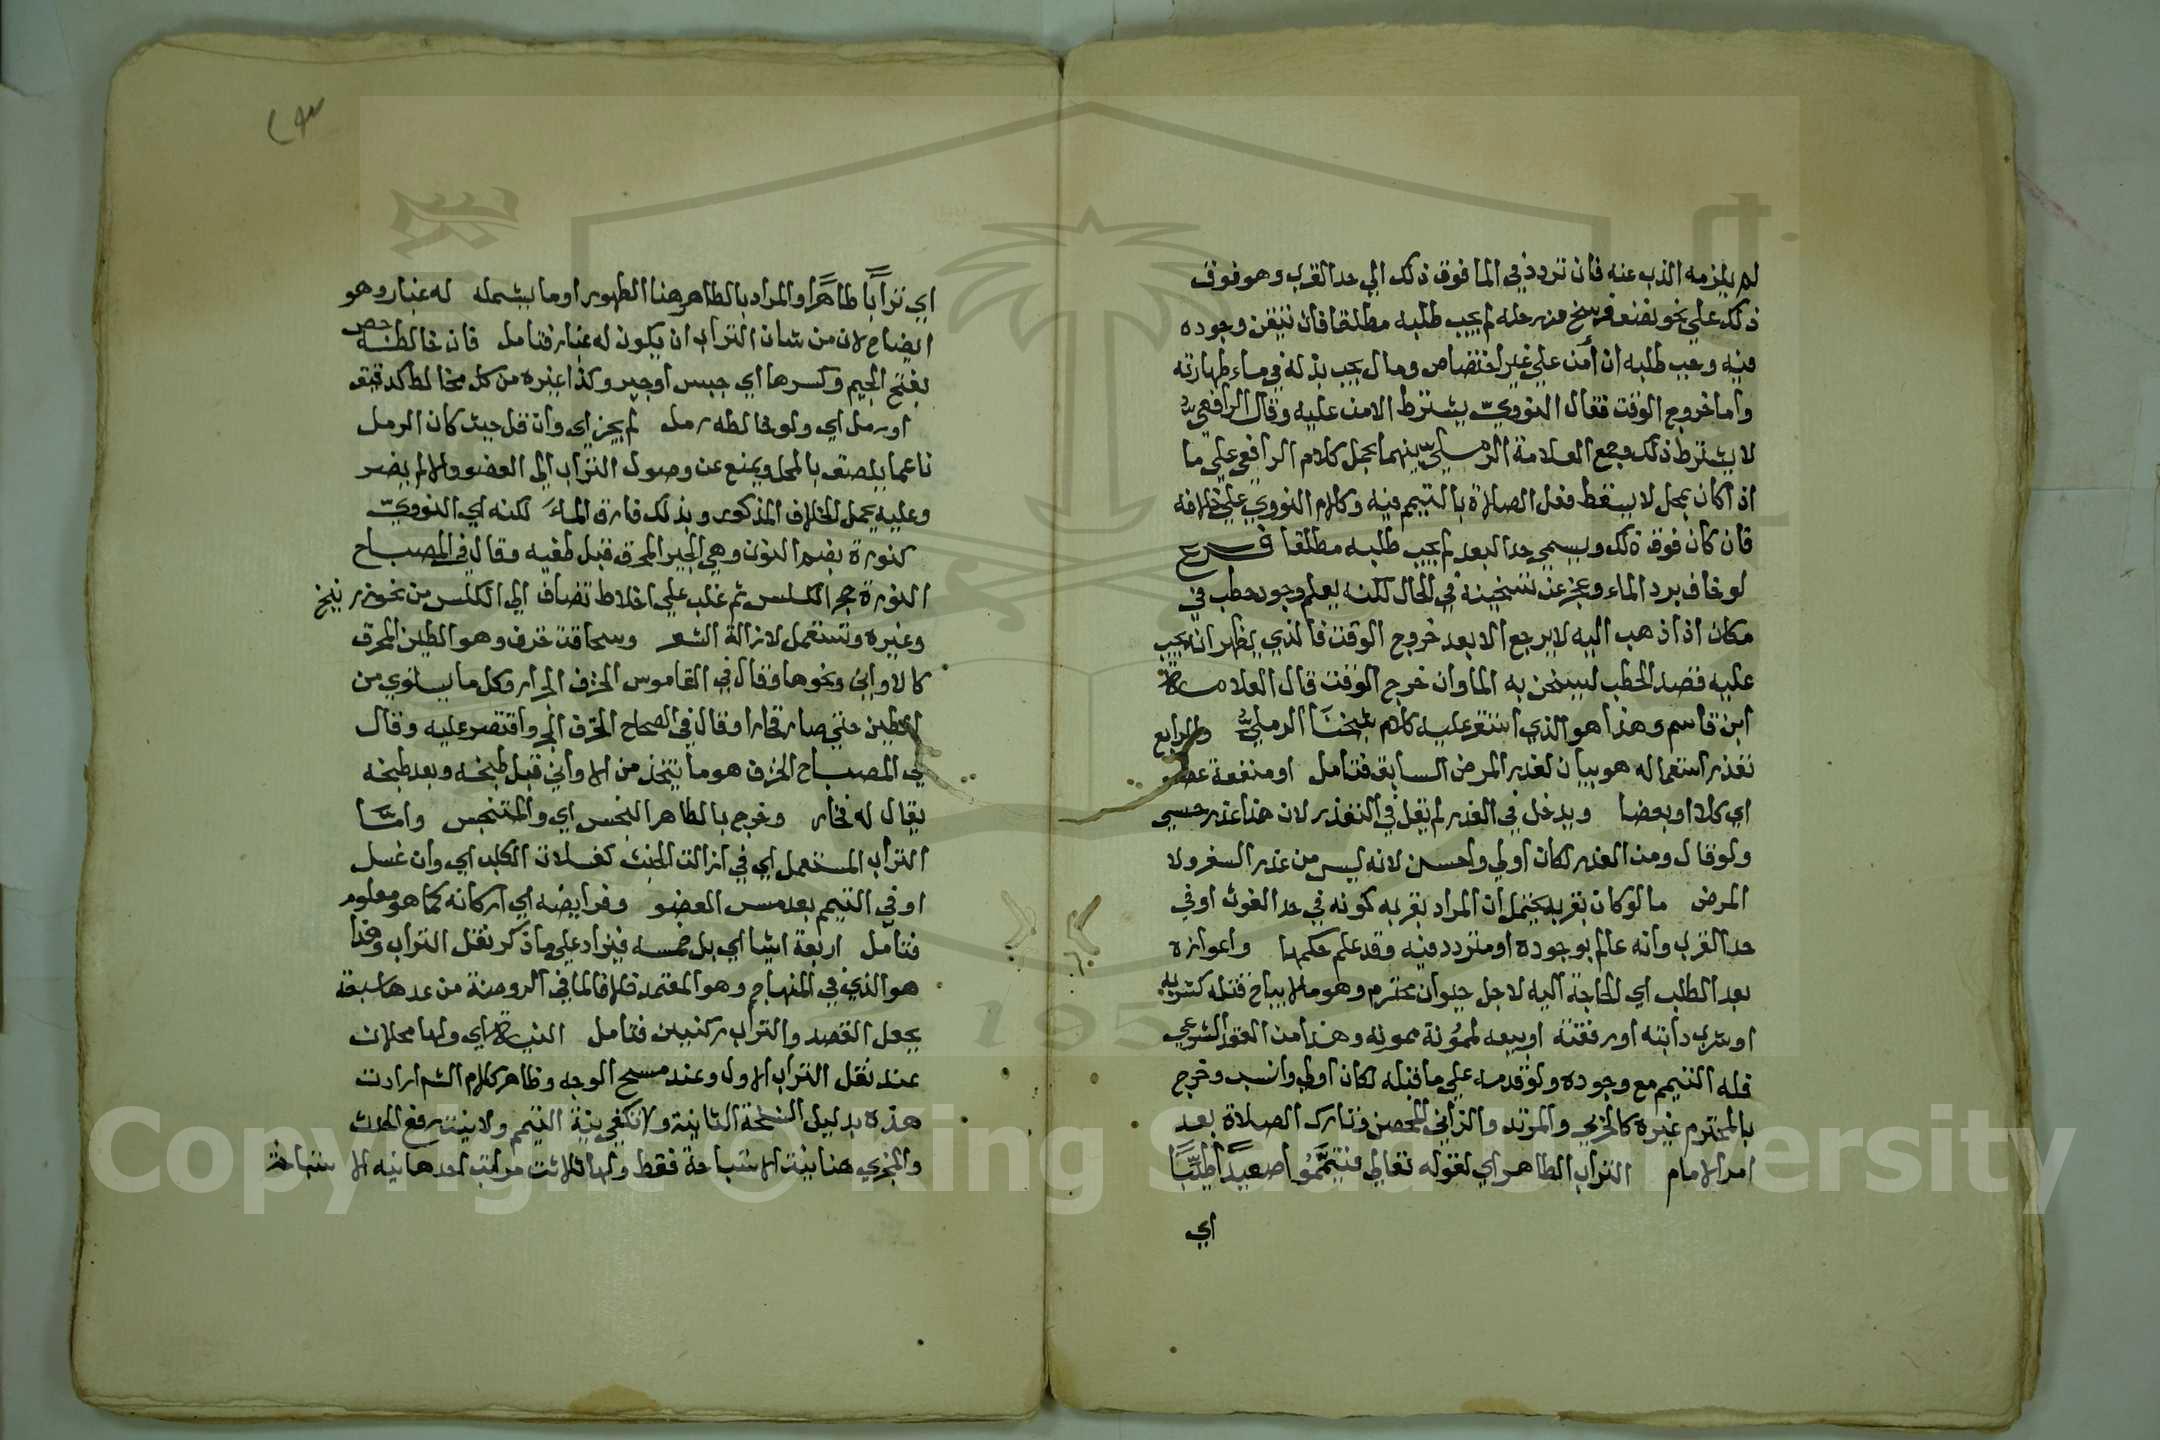 لم يلزمه الذب عنه فان تردد في الما فوق ذلك الي حد القرب وهو فوق
ذلك علي نحو نصف فرسخ من رحله لم يجب طلبه مطلقا فان تيقن وجوده
فيه وجب طلبه ان أمن علي غير اختصاص ومال يجب بذله في ماء طهارته
واما خروج الوقت فقال النوويّ يشترط الامن عليه وقال الرافعي
لا يشترط ذلك وجمع العلامة الرمليّ بينهما بحمل كلام الرافعي علي ما
اذا كان بمحل لا يسقط فعل الصلاة بالتيمم فيه وكلام النووي علي خلافه
فان كان فوق ذلك ويسمي حد البعد لم يجب طلبه مطلقا فرع
لو خاف برد الماء وعجز عن تسخينه في الحال لكنه يعلم وجود حطب في
مكان اذا ذهب اليه لا يرجع الا بعد خروج الوقت فالذي يظهر انه يجب
عليه قصد الحطب ليسخن به الما وان خرج الوقت قال العلامة
ابن قاسم وهذا هو الذي استقر عليه كلام شيخنا الرمليّ والرابع
تعذر استعماله هو بيان لعذر المرض السابق فتامل او منفعة عضو
اي كلا او بعضا ويدخل في العذر لم يقل في التعذر لان هذا عذر حسي
ولو قال ومن العذر لكان اولي واحسن لانه ليس من عذر السفر ولا
المرض ما لو كان بقربه يحتمل ان المراد بقربه كونه في حد الغوث او في
حد القرب وانه عالم بوجوده او متردد فيه وقد علم حكمها واعوازه
بعد الطلب اي الحاجة اليه لاجل حيوان محترم وهو ما لا يباح قتله كشربه
او شرب دابته او رفقته او بيعه لمؤنة ممونه وهذا من الفقد الشرعي
فله التيمم مع وجوده ولو قدمه علي ما قبله لكان اولي وانسب وخرج
بالمحترم غيره كالحربي والمرتد والزاني المحصن وتارك الصلاة بعد
امر الامام التراب الطاهر اي لقوله تعالي فتيمَّمُوا صعيدًا طيِّبًا
اي
اي ترابًا طاهرًا والمراد بالطاهر هنا الطهور او ما يشمله له غبار وهو
ايضاح لان من شان التراب ان يكون له غبار فتامل فان خالطه جص
بفتح الجيم وكسرها اي جبس او جير وكذا غيره من كل مخالط كدقيق
او رمل اي ولو خالطه رمل لم يجز اي وان قل حيث كان الرمل
ناعما يلصق بالمحل ويمنع عن وصول التراب الي العضو والا لم يضر
وعليه يحمل الخلاف المذكور وبذلك فارق الماء لكنه اي النوويّ
كنورة بضم النون وهي الجير المحرق قبل طفيه وقال في المصباح
النورة حجر الكلس ثم غلب علي اخلاط تضاف الي الكلس من نحو زرنيخ
وغيره وتستعمل لازالة الشعر وسحاقة خزف وهو الطين المحرق
كالاواني ونحوها وقال في القاموس الخزف الجرار وكل ما يشوي من
الطين حتي صار فخارا وقال في الصحاح الخزف الجر واقتصر عليه وقال
في المصباح الخزف هو ما يتخذ من الاواني قبل طبخه وبعد طبخه
يقال له فخار وخرج بالطاهر النجس اي والمتنجس وامَّا
التراب المستعمل اي في ازالة الخبث كغسلات الكلب اي وان غسل
او في التيمم بعد مس العضو وفرايضه اي اركانه كما هو معلوم
فتامّل اربعة اشيا اي بل خمسه فيزاد علي ما ذكر نقل التراب وهذا
هو الذي في المنهاج وهو المعتمد خلافا لما في الروضة من عدها سبعة
بجعل القصد والتراب ركنين فتامل النية اي ولها محلان
عند نقل التراب الاول وعند مسح الوجه وظاهر كلام الشم ارادت
هذه بدليل النسخة الثانية ولا تكفي نية التيمم ولا نية رفع الحدث
والمجزي هنا نية الاستباحة فقط ولها ثلاث مراتب احدها نية الاستباحة
Copyright © King Saud University